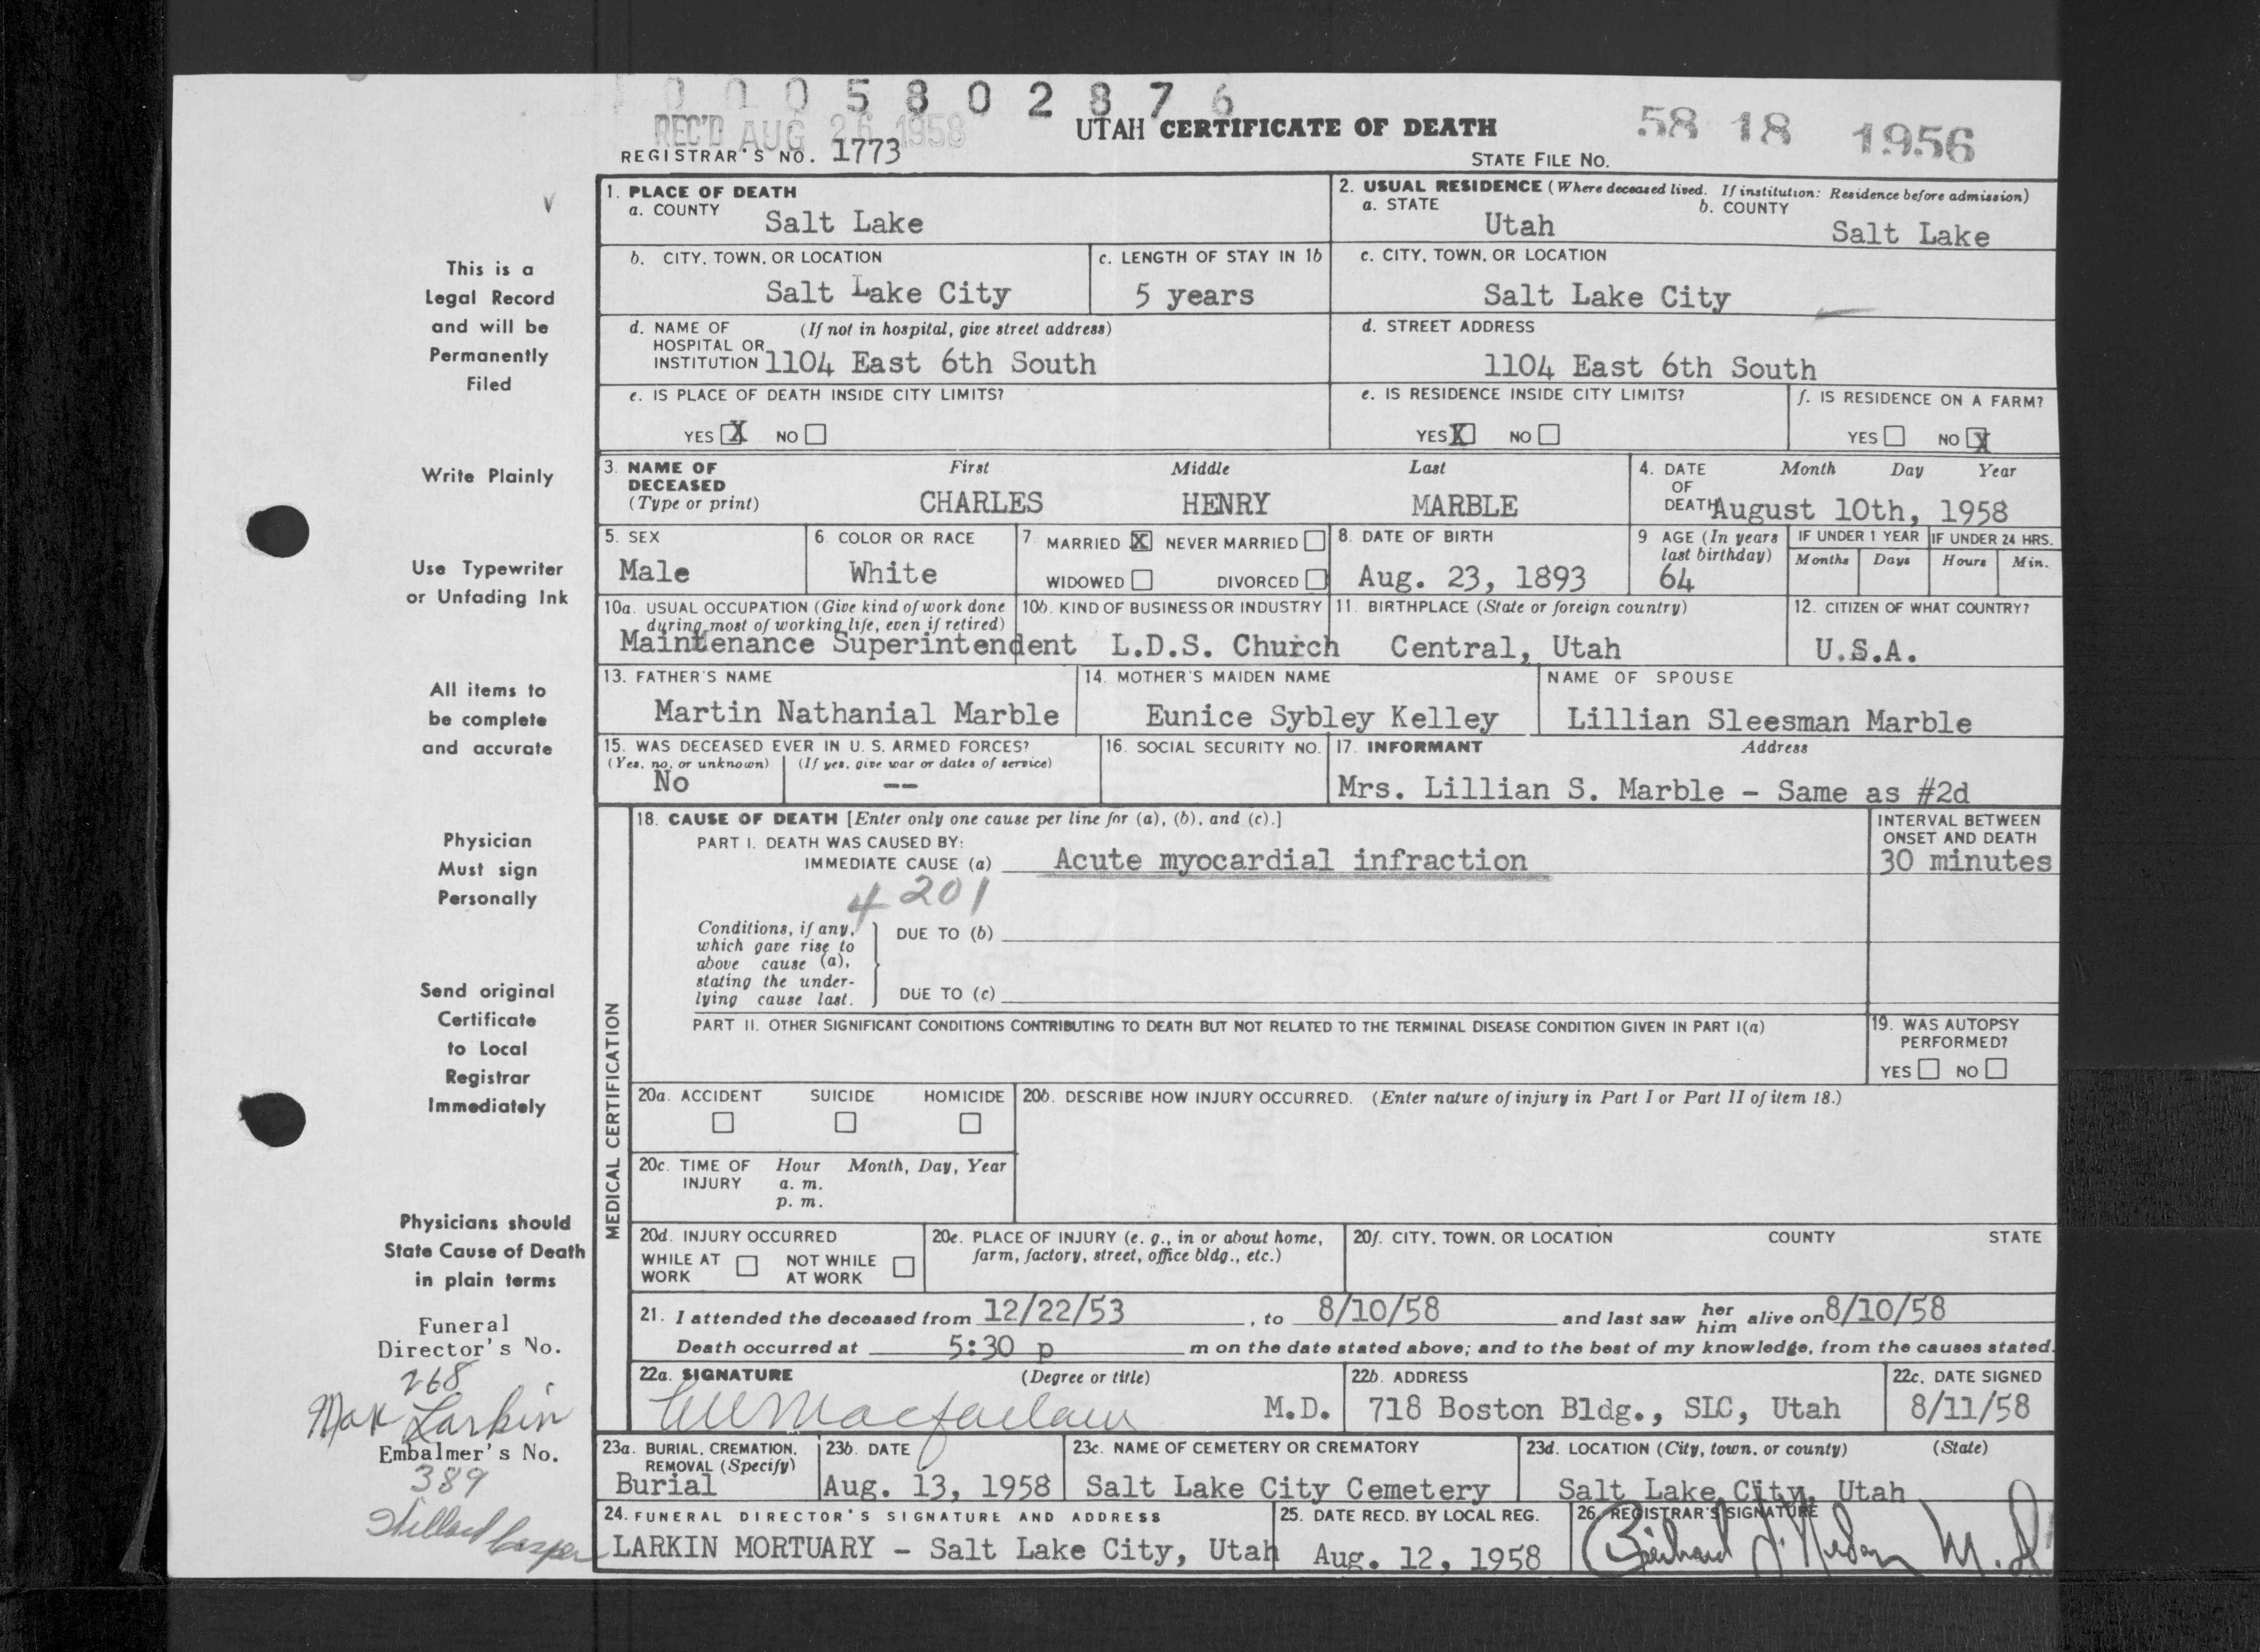 0005802876
REC'D AUG 26 1958
UTAH CERTIFICATE OF DEATH
58 18 1956
REGISTRAR'S NO. 1773
STATE FILE NO.
This is a
Legal Record
and will be
Permanently
Filed
Write Plainly
Use Typewriter
or Unfading Ink
All items to
be complete
and accurate
Physician
Must sign
Personally
Send original
Certificate
to Local
Registrar
Immediately
Physicians should
State Cause of Death
in plain terms
Funeral
Director's No.
268
Max Larkin
Embalmer's No.
389
1. PLACE OF DEATH
a. COUNTY
Salt Lake
2. USUAL RESIDENCE (Where deceased lived. If institution: Residence before admission)
a. STATE
Utah
b. COUNTY
Salt Lake
b. CITY, TOWN, OR LOCATION
Salt Lake City
c. LENGTH OF STAY IN 1b
5 years
c. CITY, TOWN, OR LOCATION
Salt Lake City
d. NAME OF (If not in hospital, give street address)
HOSPITAL OR
INSTITUTION 1104 East 6th South
d. STREET ADDRESS
1104 East 6th South
e. IS PLACE OF DEATH INSIDE CITY LIMITS?
YES X NO
e. IS RESIDENCE INSIDE CITY LIMITS?
YES X NO
f. IS RESIDENCE ON A FARM?
YES NO X
3. NAME OF
DECEASED
(Type or print)
First Middle Last
CHARLES HENRY MARBLE
4. DATE Month Day Year
OF
DEATH August 10th, 1958
5. SEX
Male
6. COLOR OR RACE
White
7. MARRIED X NEVER MARRIED
WIDOWED DIVORCED
8. DATE OF BIRTH
Aug. 23, 1893
9 AGE (In years
last birthday)
64
IF UNDER 1 YEAR
Months Days
IF UNDER 24 HRS.
Hours Min.
10a. USUAL OCCUPATION (Give kind of work done
during most of working life, even if retired)
Maintenance Superintendent
10b. KIND OF BUSINESS OR INDUSTRY
L.D.S. Church
11. BIRTHPLACE (State or foreign country)
Central, Utah
12. CITIZEN OF WHAT COUNTRY?
U.S.A.
13. FATHER'S NAME
Martin Nathanial Marble
14. MOTHER'S MAIDEN NAME
Eunice Sybley Kelley
NAME OF SPOUSE
Lillian Sleesman Marble
15. WAS DECEASED EVER IN U. S. ARMED FORCES?
(Yes, no, or unknown) (If yes, give war or dates of service)
No --
16. SOCIAL SECURITY NO.
17. INFORMANT Address
Mrs. Lillian S. Marble - Same as #2d
MEDICAL CERTIFICATION
18. CAUSE OF DEATH [Enter only one cause per line for (a), (b), and (c).]
PART I. DEATH WAS CAUSED BY:
IMMEDIATE CAUSE (a) Acute myocardial infraction
INTERVAL BETWEEN
ONSET AND DEATH
30 minutes
4201
Conditions, if any,
which gave rise to
above cause (a),
stating the under-
lying cause last.
DUE TO (b)
DUE TO (c)
PART II. OTHER SIGNIFICANT CONDITIONS CONTRIBUTING TO DEATH BUT NOT RELATED TO THE TERMINAL DISEASE CONDITION GIVEN IN PART I(a)
19. WAS AUTOPSY
PERFORMED?
YES NO
20a. ACCIDENT SUICIDE HOMICIDE
20b. DESCRIBE HOW INJURY OCCURRED. (Enter nature of injury in Part I or Part II of item 18.)
20c. TIME OF Hour Month, Day, Year
INJURY a. m.
p. m.
20d. INJURY OCCURRED
WHILE AT NOT WHILE
WORK AT WORK
20e. PLACE OF INJURY (e. g., in or about home,
farm, factory, street, office bldg., etc.)
20f. CITY, TOWN, OR LOCATION COUNTY STATE
21. I attended the deceased from 12/22/53, to 8/10/58 and last saw her him alive on 8/10/58
Death occurred at 5:30 p m on the date stated above; and to the best of my knowledge, from the causes stated.
22a. SIGNATURE (Degree or title)
M.D.
22b. ADDRESS
718 Boston Bldg., SLC, Utah
22c. DATE SIGNED
8/11/58
23a. BURIAL, CREMATION,
REMOVAL (Specify)
Burial
23b. DATE
Aug. 13, 1958
23c. NAME OF CEMETERY OR CREMATORY
Salt Lake City Cemetery
23d. LOCATION (City, town, or county) (State)
Salt Lake City, Utah
24. FUNERAL DIRECTOR'S SIGNATURE AND ADDRESS
LARKIN MORTUARY - Salt Lake City, Utah
25. DATE RECD. BY LOCAL REG.
Aug. 12, 1958
26. REGISTRAR'S SIGNATURE
M.D.